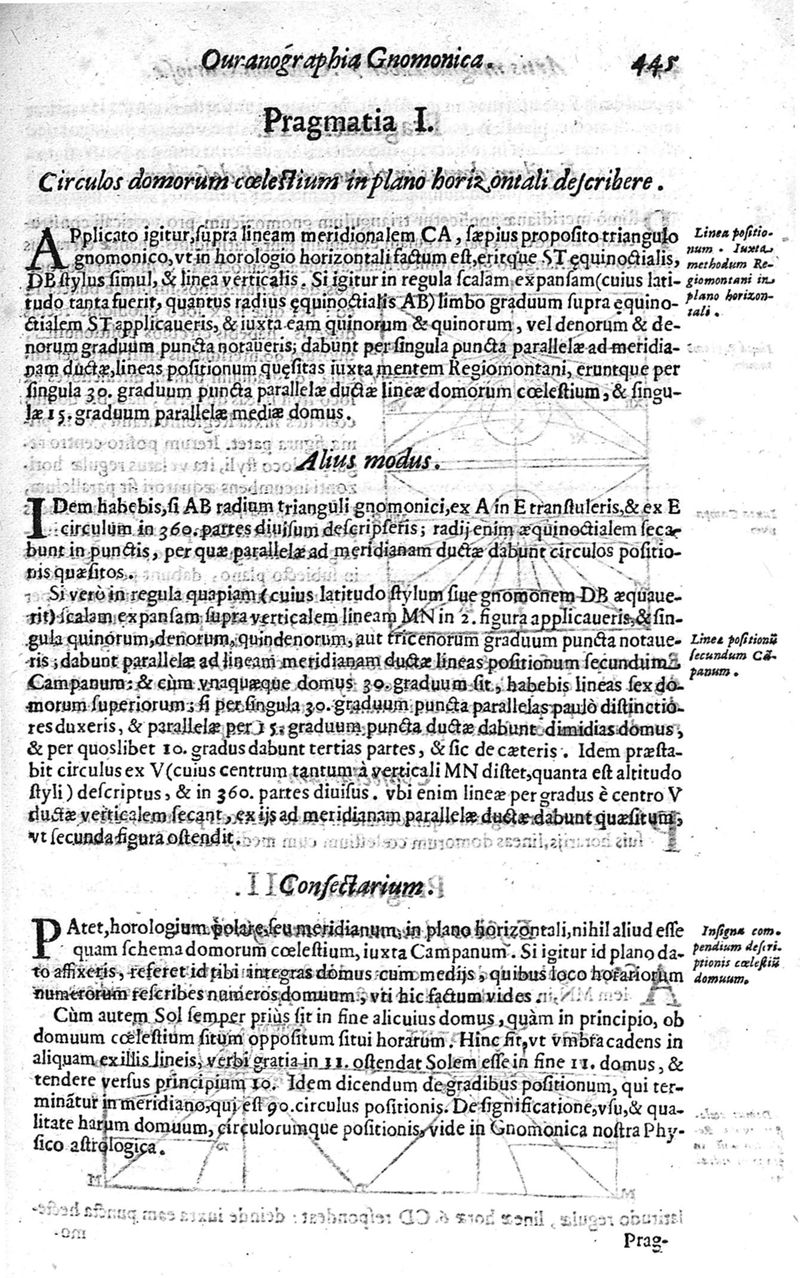 Ouranographia Gnomonica. 445
Pragmatia I.
Circulos domorum cœlestium in plano horizontali describere.
APplicato igitur, supra lineam meridionalem CA, sæpius proposito triangulo
gnomonico, vt in horologio horizontali factum est, eritque ST ęquinoctialis,
DB stylus simul, & linea verticalis. Si igitur in regula scalam expansam (cuius lati-
tudo tanta fuerit, quantus radius ęquinoctialis AB) limbo graduum supra ęquino-
ctialem ST applicaueris, & iuxta eam quinorum & quinorum, vel denorum & de-
norum graduum puncta notaueris; dabunt per singula puncta parallelæ ad meridia-
nam ductæ, lineas positionum quęsitas iuxta mentem Regiomontani, eruntque per
singula 30. graduum puncta parallelæ ductæ lineæ domorum cœlestium, & singu-
læ 15. graduum parallelæ mediæ domus.
Linea positio-
num. Iuxta
methodum Re-
giomontani in
plano horizon-
tali.
Alius modus.
IDem habebis, si AB radium trianguli gnomonici, ex A in E transtuleris, & ex E
circulum in 360. partes diuisum descripseris; radij enim æquinoctialem seca-
bunt in punctis, per quæ parallelæ ad meridianam ductæ dabunt circulos positio-
nis quæsitos.
Si verò in regula quapiam (cuius latitudo stylum siue gnomonem DB æquaue-
rit) scalam expansam supra verticalem lineam MN in 2. figura applicaueris, & sin-
gula quinorum, denorum, quindenorum, aut tricenorum graduum puncta notaue-
ris; dabunt parallelæ ad lineam meridianam ductæ lineas positionum secundum
Campanum: & cùm vnaquæque domus 30. graduum sit, habebis lineas sex do-
morum superiorum; si per singula 30. graduum puncta parallelas paulò distinctio-
res duxeris, & parallelæ per 15. graduum puncta ductæ dabunt dimidias domus,
& per quoslibet 10. gradus dabunt tertias partes, & sic de cæteris. Idem præsta-
bit circulus ex V (cuius centrum tantum à verticali MN distet, quanta est altitudo
styli) descriptus, & in 360. partes diuisus. vbi enim lineæ per gradus è centro V
ductæ verticalem secant, ex ijs ad meridianam parallelæ ductæ dabunt quæsitum,
vt secunda figura ostendit.
Linea positionũ
secundum Cã-
panum.
Consectarium.
PAtet, horologium polare, seu meridianum, in plano horizontali, nihil aliud esse
quam schema domorum cœlestium, iuxta Campanum. Si igitur id plano da-
to affixeris, referet id tibi integras domus cum medijs, quibus loco horariorum
numerorum rescribes numeros domuum; vti hic factum vides.
Insigne com-
pendium descri-
ptionis cœlestiũ
domuum.
Cùm autem Sol semper priùs sit in fine alicuius domus, quàm in principio, ob
domuum cœlestium situm oppositum situi horarum. Hinc fit, vt vmbra cadens in
aliquam ex illis lineis, verbi gratia in 11. ostendat Solem esse in fine 11. domus, &
tendere versus principium 10. Idem dicendum de gradibus positionum, qui ter-
minãtur in meridiano, qui est 90. circulus positionis. De significatione, vsu, & qua-
litate harum domuum, circulorumque positionis, vide in Gnomonica nostra Phy-
sico astrologica.
Prag-